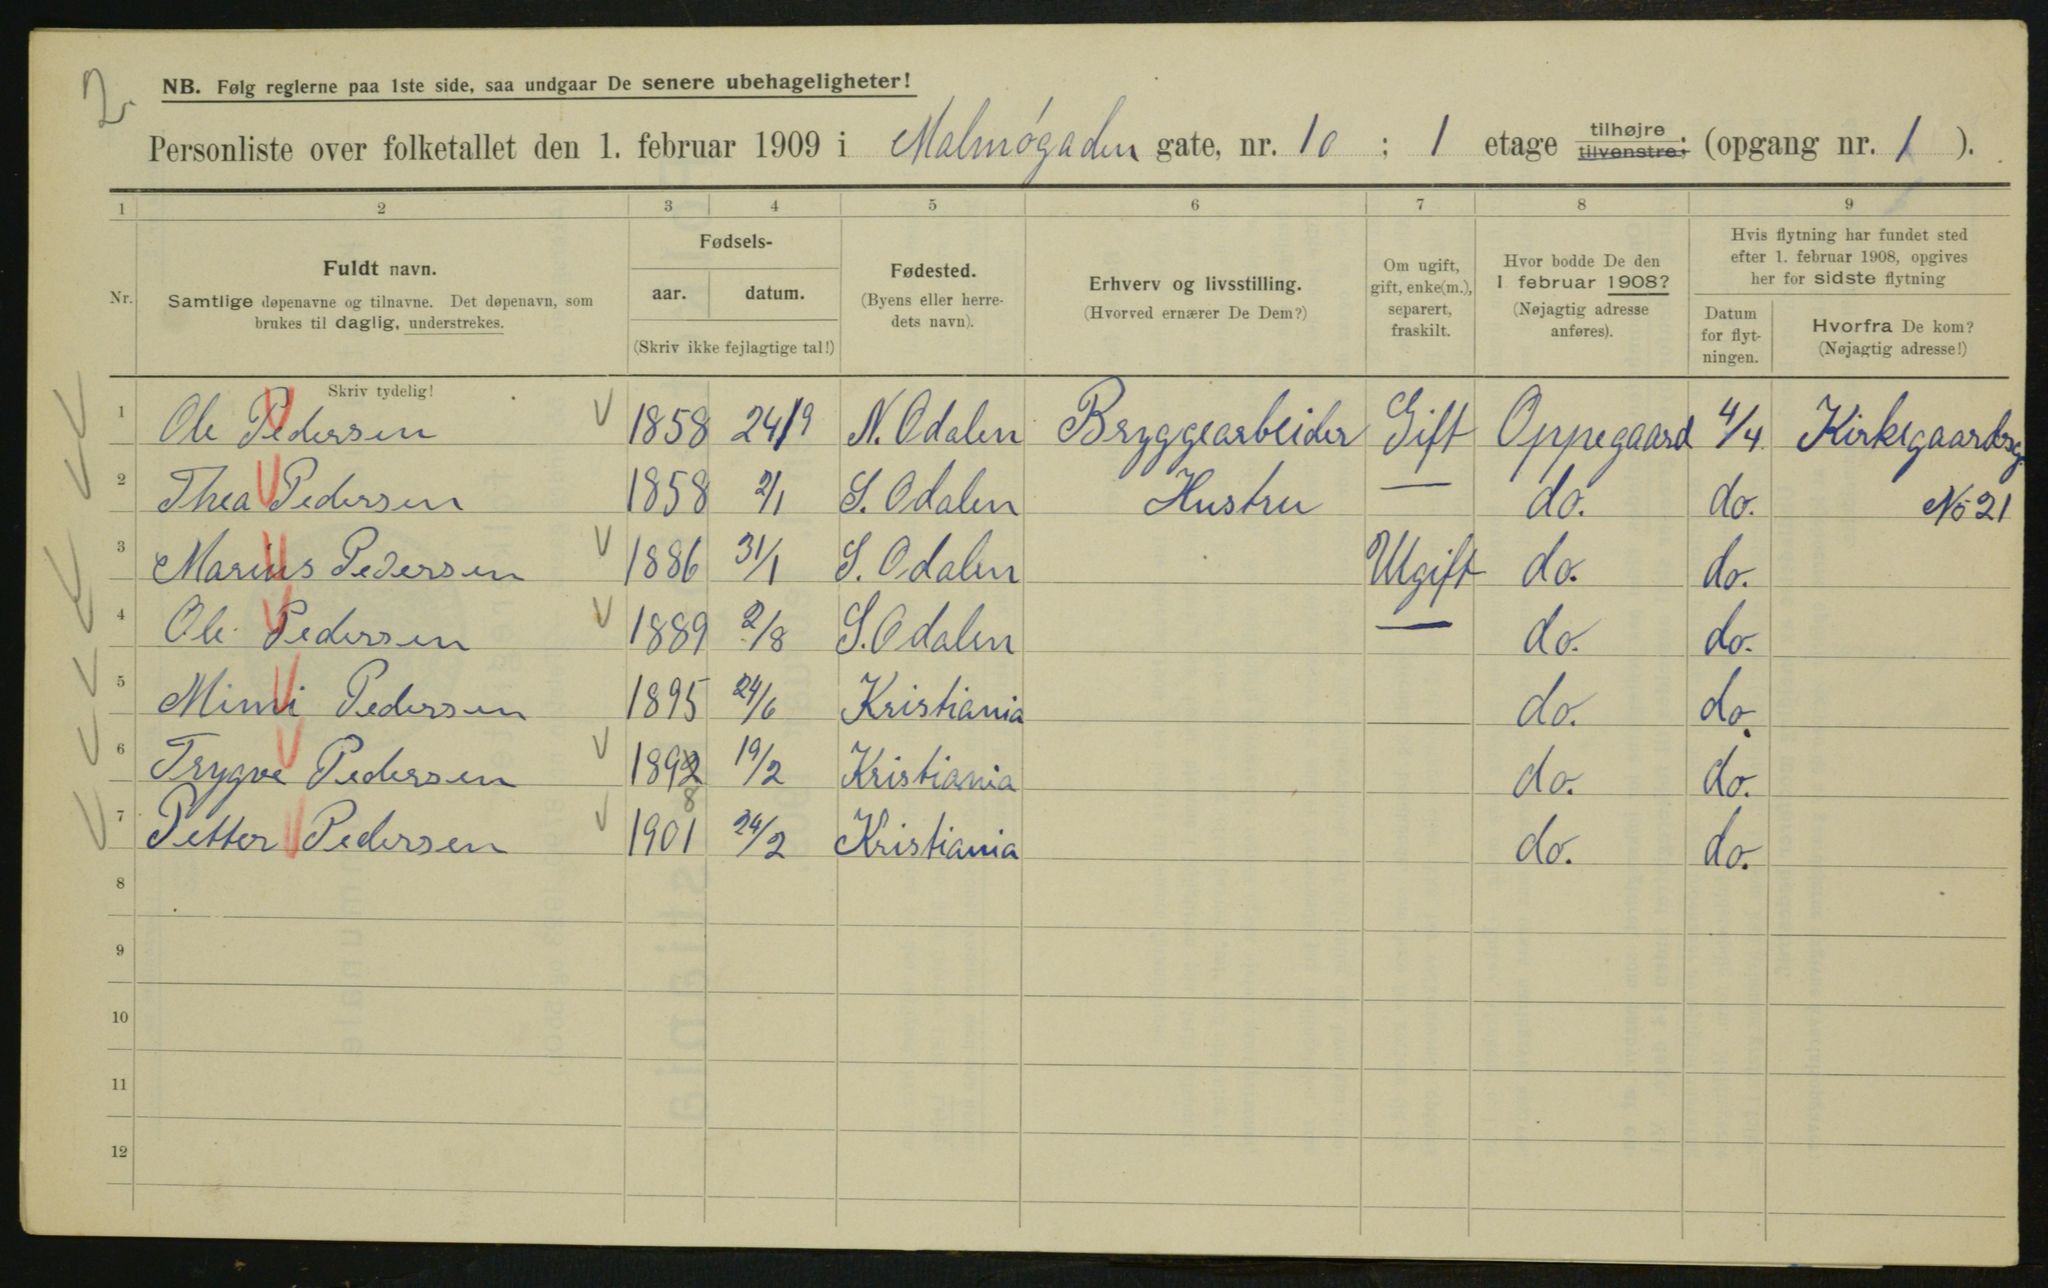 2.
NB. Følg reglerne paa 1ste side, saa undgaar De senere ubehageligheter!
Personliste over folketallet den 1. februar 1909 i Malmøgaden gate, nr. 10 ; 1 etage tilhøjre tilvenstre; (opgang nr. 1 ).
1 2 3 4 5 6 7 8 9
Nr.
Fuldt navn.
Samtlige døpenavne og tilnavne. Det døpenavn, som
brukes til daglig, understrekes.
Fødsels-
aar. datum.
(Skriv ikke fejlagtige tal!)
Fødested.
(Byens eller herre-
dets navn).
Erhverv og livsstilling.
(Hvorved ernærer De Dem?)
Om ugift,
gift, enke(m.),
separert,
fraskilt.
Hvor bodde De den
1 februar 1908?
(Nøjagtig adresse
anføres).
Hvis flytning har fundet sted
efter 1. februar 1908, opgives
her for sidste flytning
Datum
for flyt-
ningen.
Hvorfra De kom?
(Nøjagtig adresse!)
Skriv tydelig!
1 Ole Pedersen 1858 24/9 N. Odalen Bryggearbeider Gift Oppegaard 4/4 Kirkegaardsg.
2 Thea Pedersen 1858 2/1 S. Odalen Hustru — do. do. No 21
3 Marius Pedersen 1886 31/1 S. Odalen Ugift do. do.
4 Ole Pedersen 1889 2/8 S. Odalen — do. do.
5 Mimi Pedersen 1895 24/6 Kristiania do. do.
6 Trygve Pedersen 1892 19/2 Kristiania do. do.
8
7 Petter Pedersen 1901 24/2 Kristiania do. do.
8
9
10
11
12